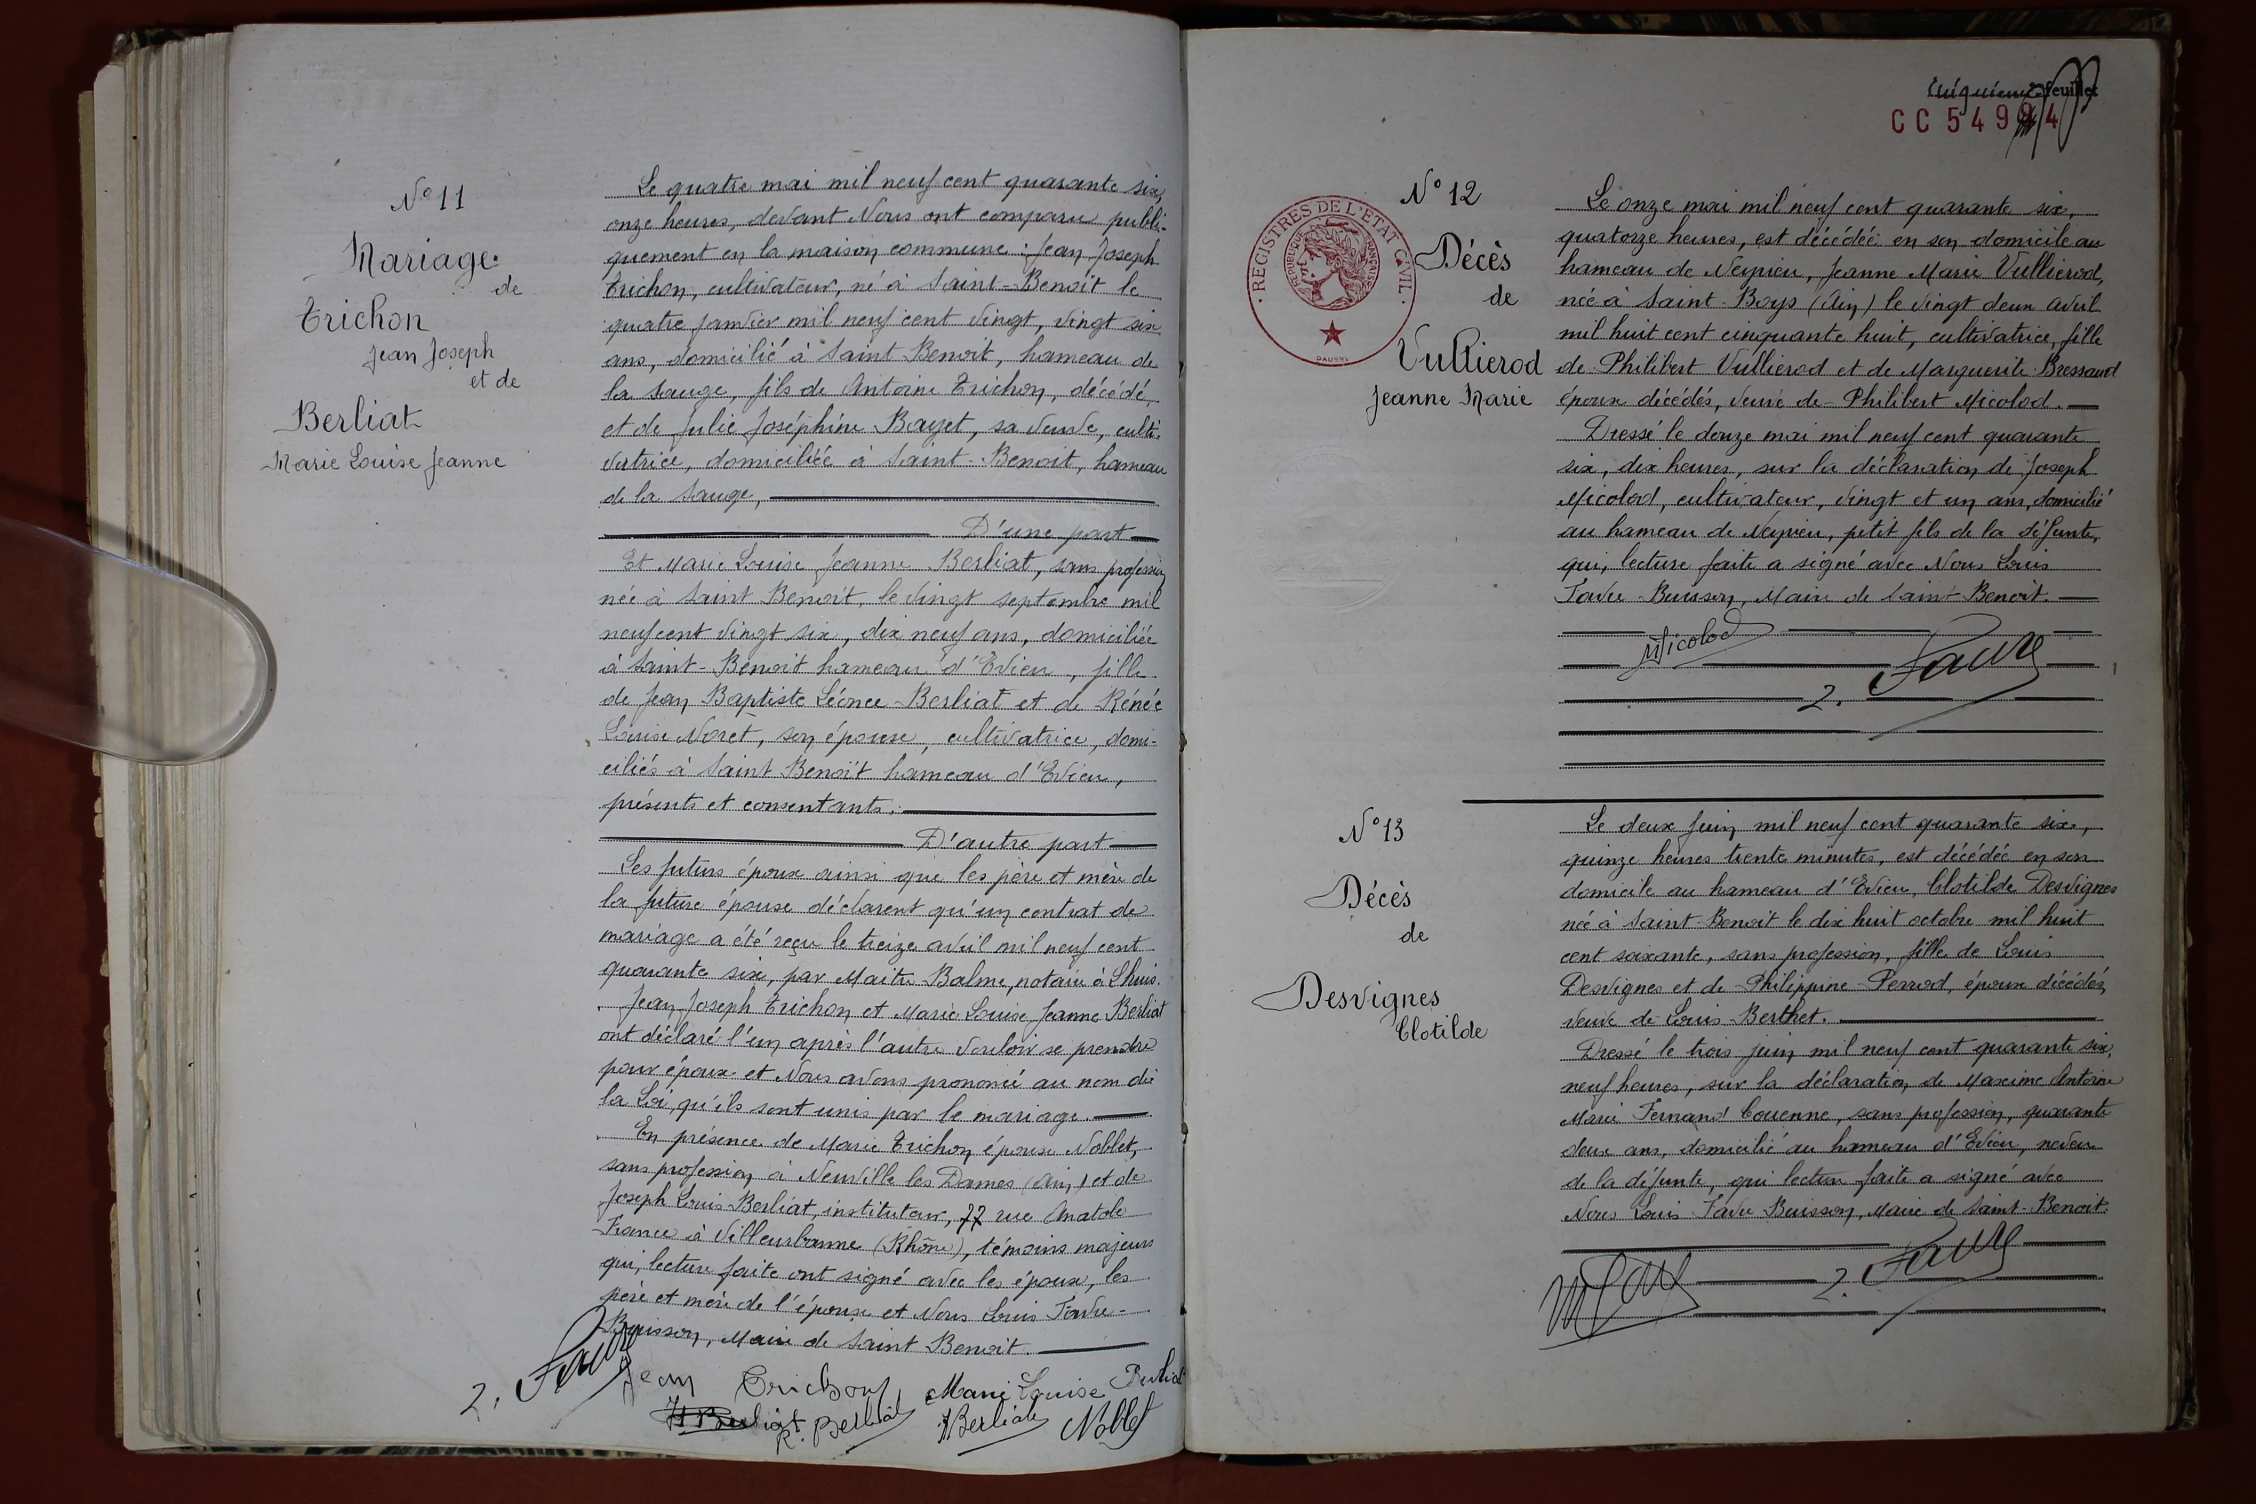 N° 11
Mariage
de
Trichon
Jean Joseph
et de
Berliat
Marie Louise Jeanne
Le quatre mai mil neuf cent quarante six,
onze heures, devant Nous ont comparu publi-
quement en la maison commune : Jean Joseph
Trichon, cultivateur, né à Saint-Benoît le
quatre janvier mil neuf cent vingt, vingt six
ans, domicilié à Saint Benoit, hameau de
la Sauge, fils de Antoine Trichon, décédé,
et de Julie Joséphine Bayet, sa veuve, culti-
vatrice, domiciliée à Saint-Benoit, hameau
de la Sauge,
D'une part
Et Marie Louise Jeanne Berliat, sans profession
née à Saint Benoit, le vingt septembre mil
neuf cent vingt six, dix neuf ans, domiciliée
à Saint-Benoit hameau d'Evieu, fille
de Jean Baptiste Léonce Berliat et de Rénée
Louise Noret, son épouse, cultivatrice, domi-
ciliés à Saint Benoit hameau d'Evieu,
présents et consentants.
D'autre part
Les futurs époux ainsi que les père et mère de
la future épouse déclarent qu'un contrat de
mariage a été reçu le treize avril mil neuf cent
quarante six, par Maitre Balme, notaire à Lhuis.
Jean Joseph Trichon et Marie Louise Jeanne Berliat
ont déclaré l'un après l'autre vouloir se prendre
pour époux et Nous avons prononcé au nom de
la Loi, qu'ils sont unis par le mariage.
En présence de Marie Trichon épouse Noblet,
sans profession à Neuville les Dames (Ain) et de
Joseph Louis Berliat, instituteur, 77 rue Anatole
France à Villeurbanne (Rhône), témoins majeurs
qui, lecture faite ont signé avec les époux, les
père et mère de l'épouse et Nous Louis Favre-
Buisson, Maire de Saint Benoit.
2. Favre
Jean Trichon Marie Louise Berliat
Berliat R. Berliat Berliat Noblet
Cinquième feuillet
CC 549 4
REGISTRES DE L'ETAT CIVIL
REPUBLIQUE FRANÇAISE
DAUSSY
N° 12
Décès
de
Vullierod
Jeanne Marie
Le onze mai mil neuf cent quarante six,
quatorze heures, est décédée en son domicile au
hameau de Neyrieu, Jeanne Marie Vullierod,
née à Saint-Boys (Ain) le vingt deux avril
mil huit cent cinquante huit, cultivatrice, fille
de Philibert Vullierod et de Marguerite Bressand
époux décédés, veuve de Philibert Micolod.
Dressé le douze mai mil neuf cent quarante
six, dix heures, sur la déclaration de Joseph
Micolod, cultivateur, vingt et un ans, domicilié
au hameau de Neyrieu, petit fils de la défunte,
qui, lecture faite a signé avec Nous Louis
Favre-Buisson, Maire de Saint Benoit.
Micolod
2. Favre
N° 13
Décès
de
Desvignes
Clotilde
Le deux Juin mil neuf cent quarante six,
quinze heures trente minutes, est décédée en son
domicile au hameau d'Evieu, Clotilde Desvignes
née à Saint-Benoit le dix huit octobre mil huit
cent soixante, sans profession, fille de Louis
Desvignes et de Philippine Perrod, époux décédés,
veuve de Louis Berthet.
Dressé le trois juin mil neuf cent quarante six,
neuf heures, sur la déclaration de Maxime Antoine
Marie Fernand Couenne, sans profession, quarante
deux ans, domicilié au hameau d'Evieu, neveu
de la défunte, qui lecture faite a signé avec
Nous Louis Favre Buisson, Maire de Saint-Benoit.
2. Favre